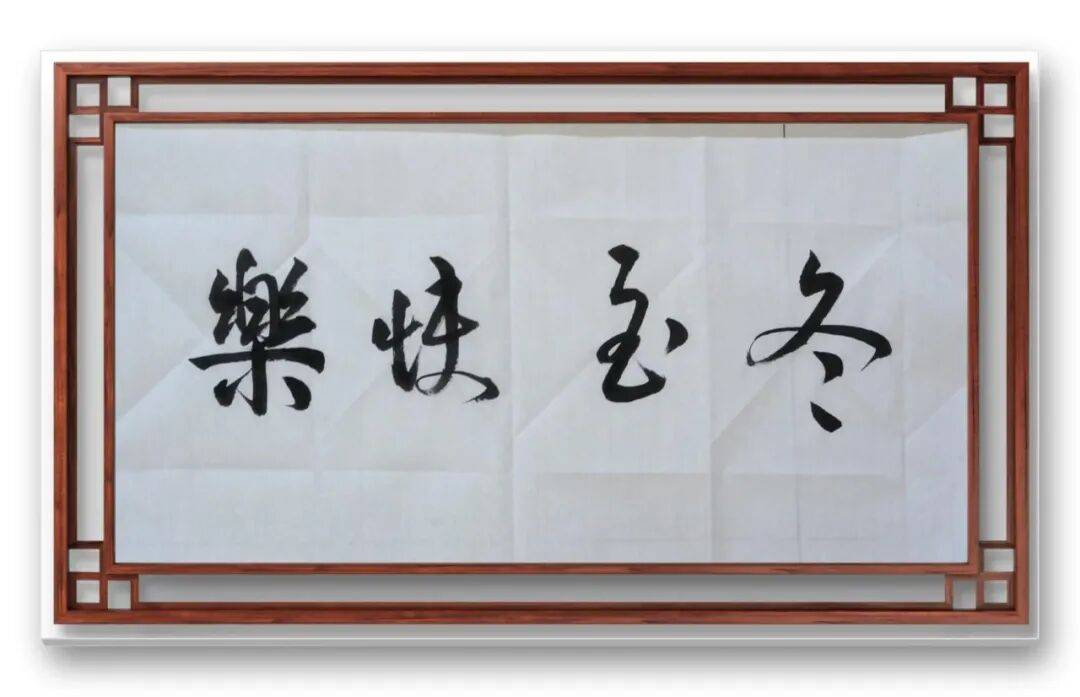 冬至快樂